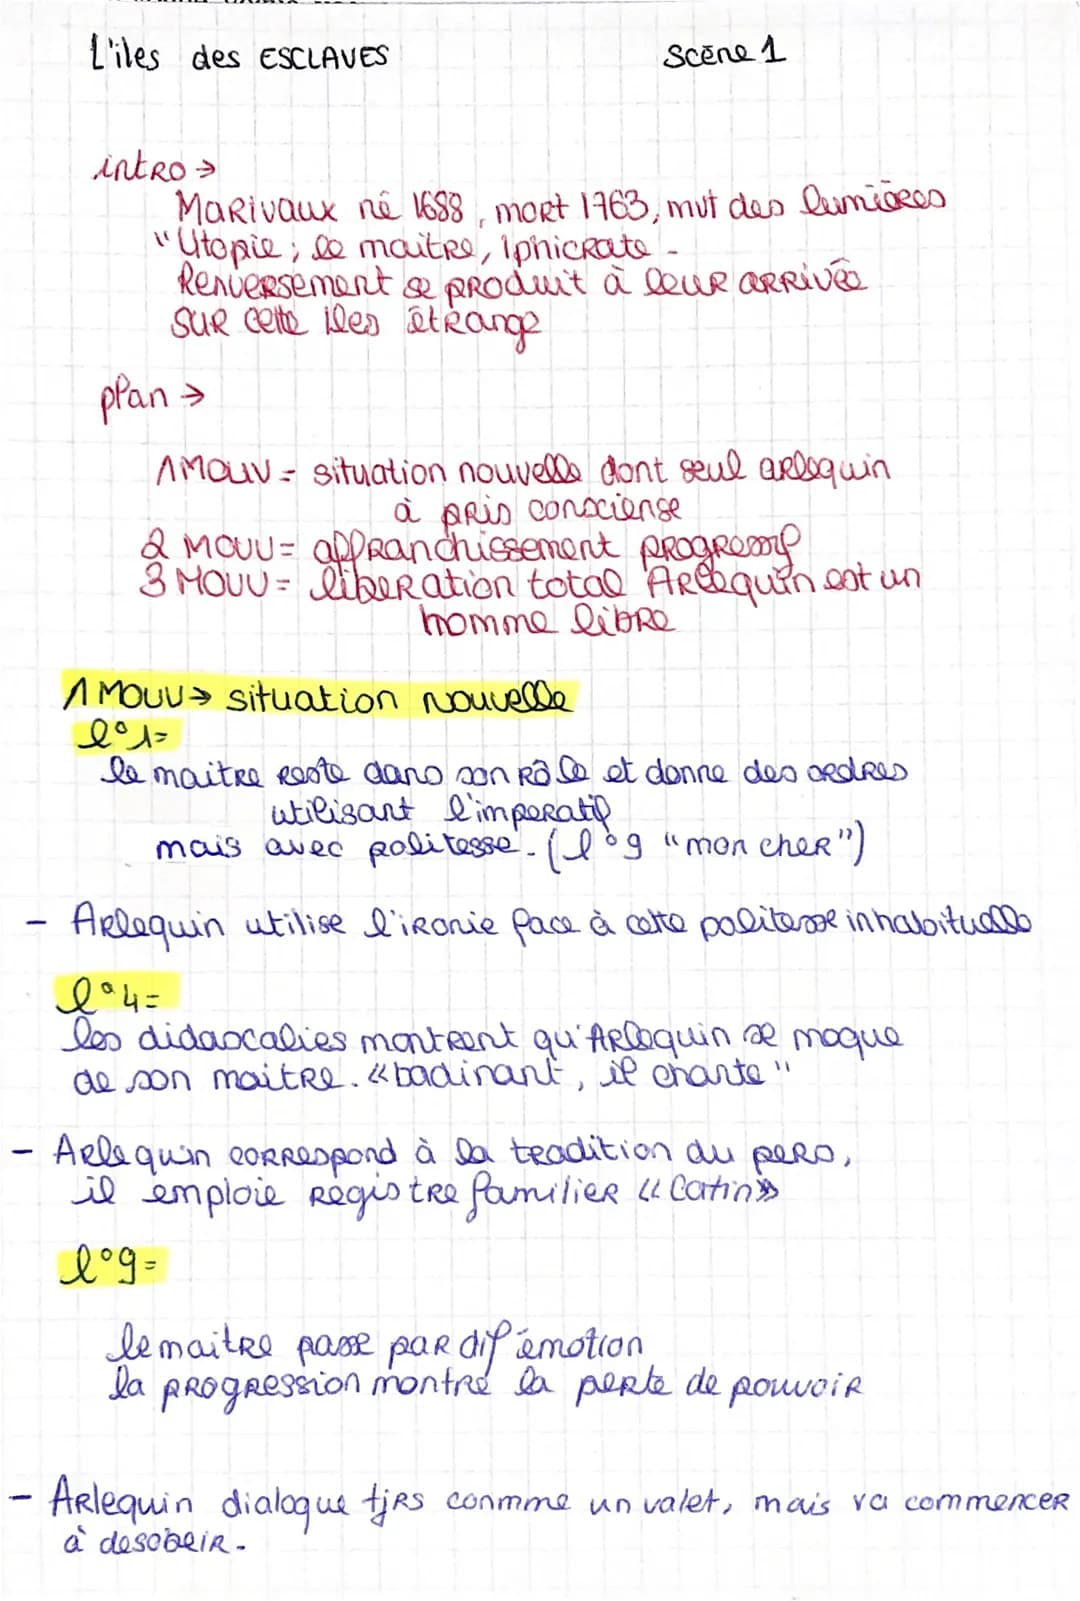 L'iles des ESCLAVES Scène 1
intro →
Marivaux né 1688, mort 1763, mut des lumières
"Utopie ; le maitre, Iphicrate -
Renversement se produit à leur arrivée
sur cette iles étrange
plan →
1 MOUV = situation nouvelle dont seul arlequin
à pris consciense
2 MOUV = affranchissement progressif
3 MOUV = liberation total Arlequin est un
homme libre
1 MOUV → situation nouvelle
l°1=
le maitre reste dans son rôle et donne des ordres
utilisant l'imperatif
mais avec politesse. (l°9 "mon cher")
- Arlequin utilise l'ironie face à cette politesse inhabituelle
l°4=
les didascalies montrent qu'Arlequin se moque
de son maitre. «badinant, il chante"
- Arlequin correspond à la tradition du pero,
il emploie registre familier «Catin»
l°9=
le maitre passe par dif émotion
la progression montre la perte de pouvoir
- Arlequin dialogue tjrs conmme un valet, mais va commencer
à desobeir.